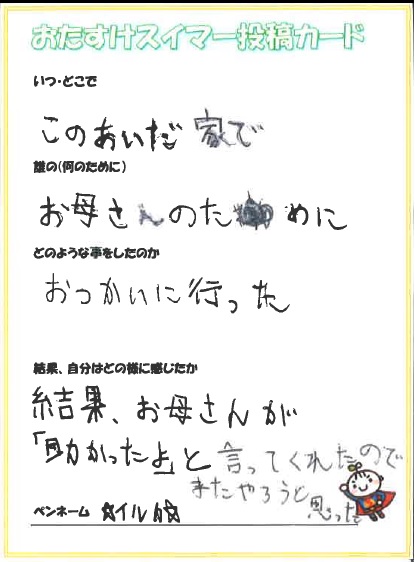 おたすけスイマー投稿カード
いつ・どこで
このあいだ 家で
誰の(何のために)
お母さんのために
どのような事をしたのか
おつかいに行った
結果、自分はどの様に感じたか
結果、お母さんが
「助かったよ」と言ってくれたので
またやろうと思った
ペンネーム ☆イルカ☆